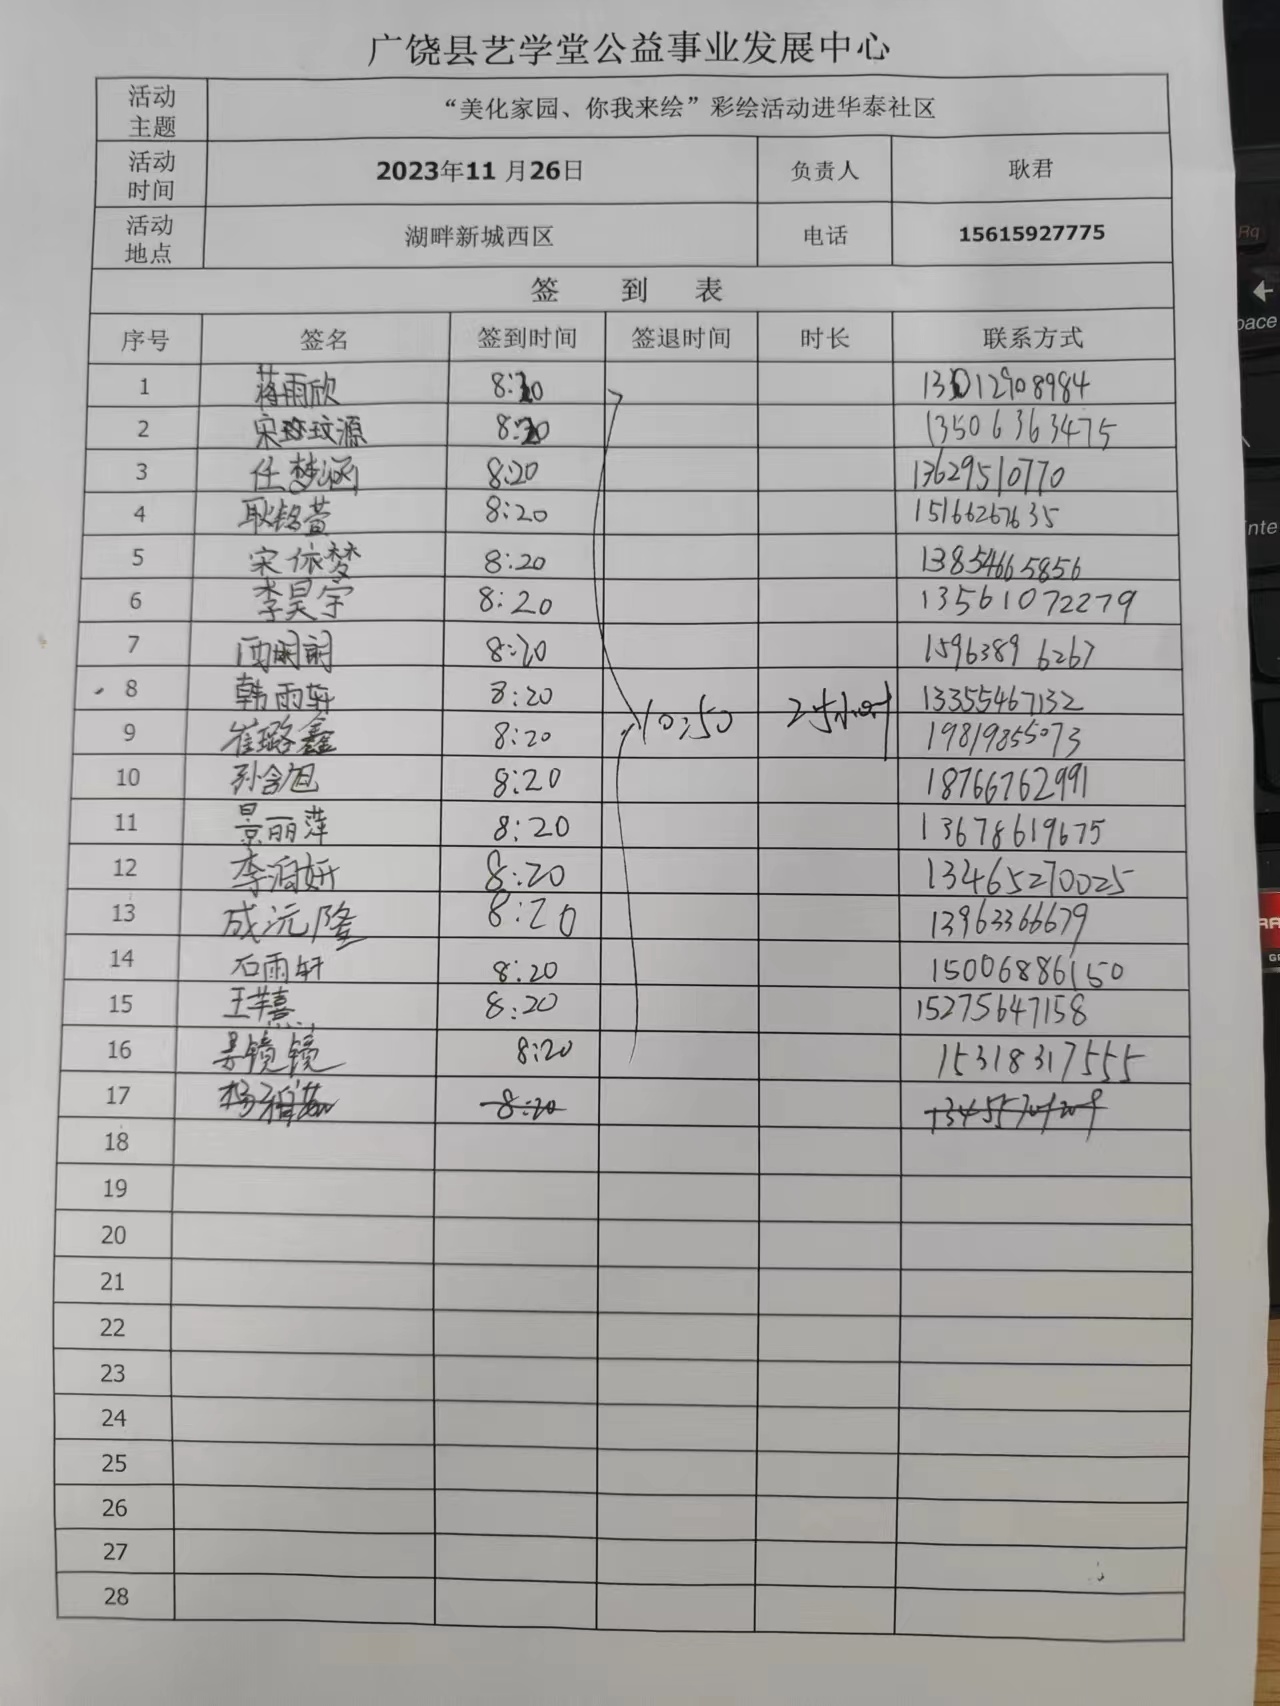 广饶县艺学堂公益事业发展中心
活动主题 “美化家园、你我来绘”彩绘活动进华泰社区
活动时间 2023年11月26日 负责人 耿君
活动地点 湖畔新城西区 电话 15615927775
签 到 表
序号 签名 签到时间 签退时间 时长 联系方式
1 蒋雨欣 8:20
2 宋玟源 8:20 13506363475
3 任梦涵 8:20 13629510770
4 耿铭萱 8:20 15166267635
5 宋依梦 8:20 13854665856
6 李昊宇 8:20 13561072279
7 8:20 15963896267
8 韩雨轩 8:20 13355467132
10:50 2小时
9 崔璐鑫 8:20 19819855073
10 孙含旭 8:20 18766762991
11 景丽萍 8:20 13678619675
12 李泊妍 8:20 13465270025
13 成沅隆 8:20 13963366679
14 石雨轩 8:20 15006886150
15 王芊熹 8:20 15275647158
16 吴镜镜 8:20 15318317555
17 8:20
18
19
20
21
22
23
24
25
26
27
28